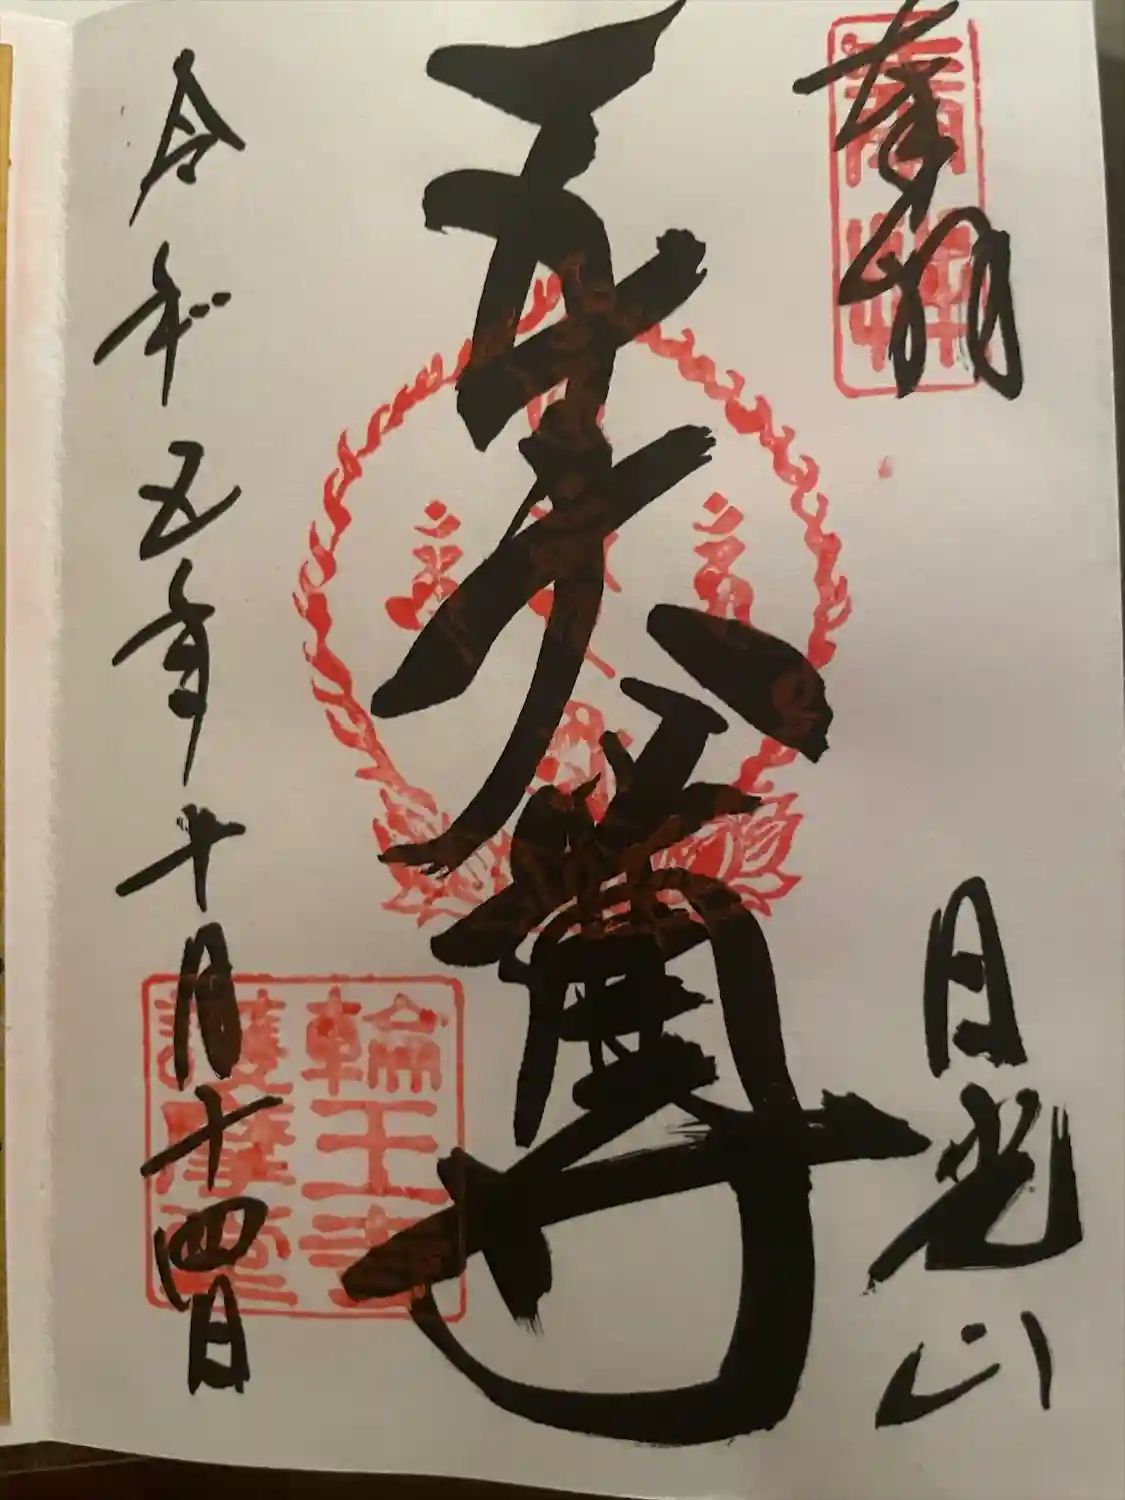 奉拝
日光山
五大尊
令和五年十月十四日
輪王寺
護摩堂